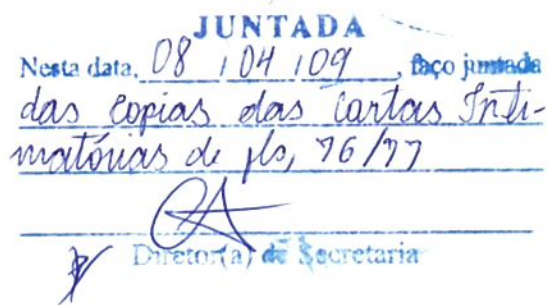 JUNTADA
Nesta data, 08 / 04 / 09, faço juntada
das copias das Cartas Inti-
matórias de fls, 76/77
Diretor(a) de Secretaria